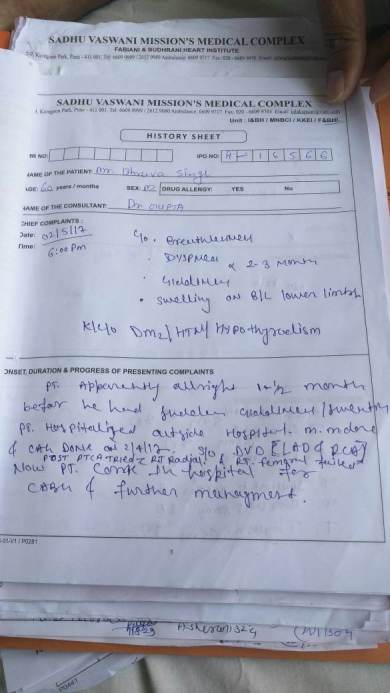 SADHU VASWANI MISSION'S MEDICAL COMPLEX
FABIANI & BUDHRANI HEART INSTITUTE
SADHU VASWANI MISSION'S MEDICAL COMPLEX
Unit : I&BH / MNBCI / KKEI / F&BHI
HISTORY SHEET
MR NO:
IPD NO: 16566
NAME OF THE PATIENT: Mr. Dhruva Singh
AGE: 60 years / months SEX: M DRUG ALLERGY: YES No
NAME OF THE CONSULTANT: Dr. GUPTA
CHIEF COMPLAINTS :
Date: 02/5/17
Time: 6:00 Pm
C/o • Breathlessness
• Dyspnea
• Giddiness x 2-3 month
• Swelling on B/L lower limbs
K/c/o Dm2 / HTN / Hypothyroidism
ONSET, DURATION & PROGRESS OF PRESENTING COMPLAINTS
PT. Apparently allright 1-1/2 month
before he had sudden Giddiness / Sweating
PT. Hospitalized outside Hospital.
& CAG Done on 2/4/17. S/O DVD [LAD & RCA]
POST PTCA TRIED RT Radial & RT. femoral failed
Now PT. Come in hospital for
CABG & further management.
P0281